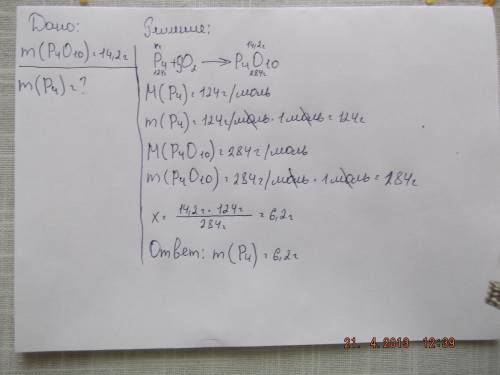 Дано:
m(P4O10)=14,2г
m(P4)=?
Решение:
x г 14,2г
P4+5O2 ⟶ P4O10
124г 284г
M(P4)=124г/моль
m(P4)=124г/моль·1моль=124г
M(P4O10)=284г/моль
m(P4O10)=284г/моль·1моль=284г
x= 14,2г·124г / 284г =6,2г
Ответ: m(P4)=6,2г
21. 4.2013 12:39